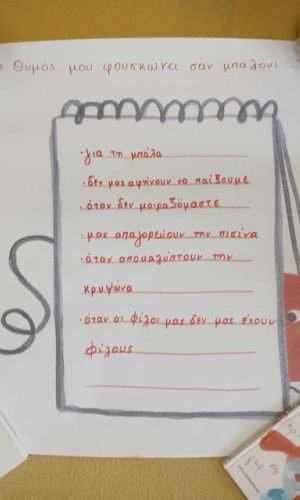 Θυμός μου φουσκώνει σαν μπαλόνι...
·για τη μπάλα
·δεν μας αφήνουν να παίξουμε
·όταν δεν μοιραζόμαστε
·μας απαγορεύουν την πισίνα
·όταν αποκαλύπτουν την
κρυψώνα
·όταν οι φίλοι μας δεν μας έχουν
φίλους
γκρ